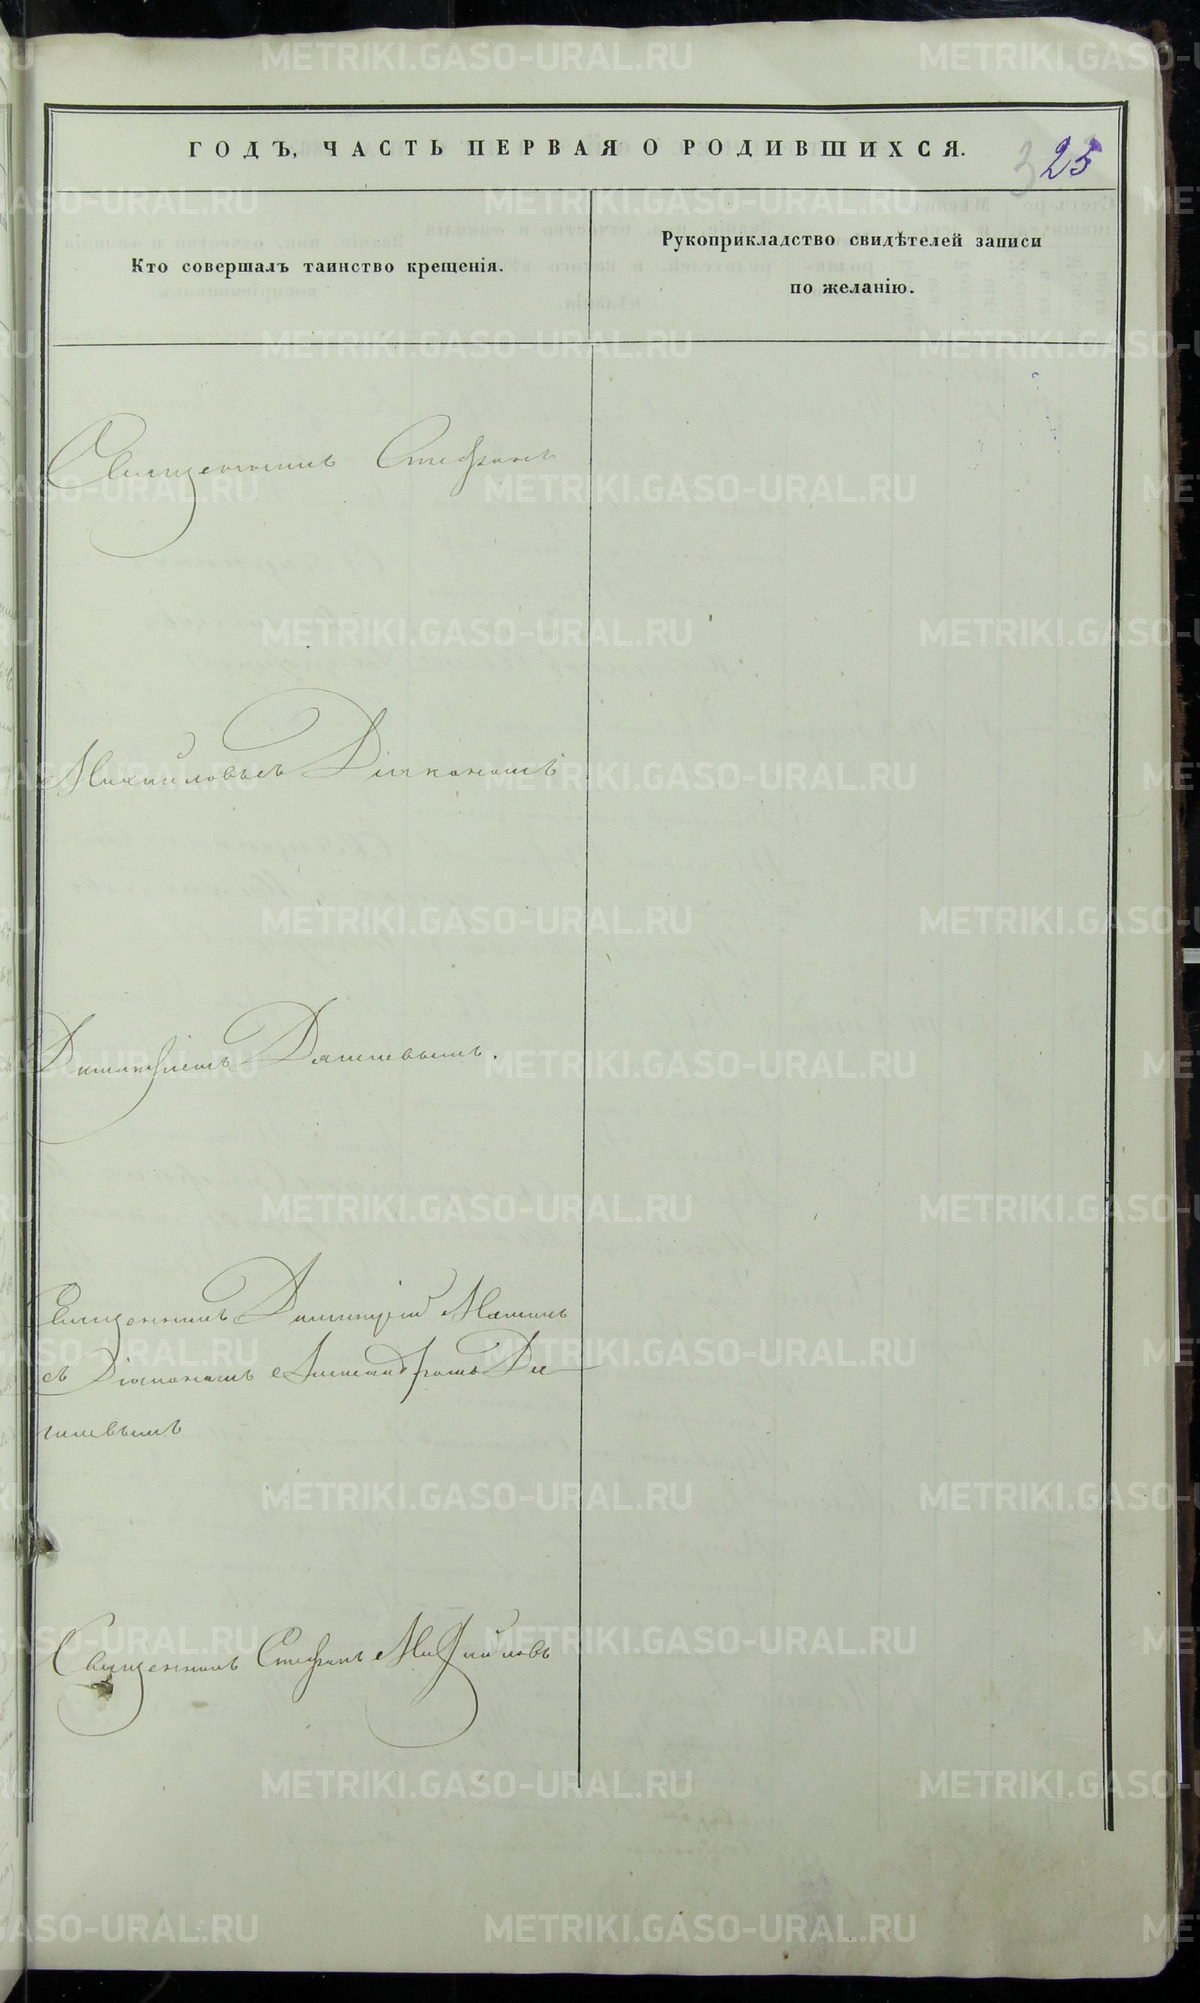 ГОДЪ, ЧАСТЬ ПЕРВАЯ О РОДИВШИХСЯ.
325
Кто совершалъ таинство крещенія.
Рукоприкладство свидѣтелей записи
по желанію.
Священникъ Стефанъ
Михайловъ съ Діакономъ
Священникъ Димитрій
съ Діакономъ Александромъ
Священникъ Стефанъ Михайловъ
METRIKI.GASO-URAL.RU